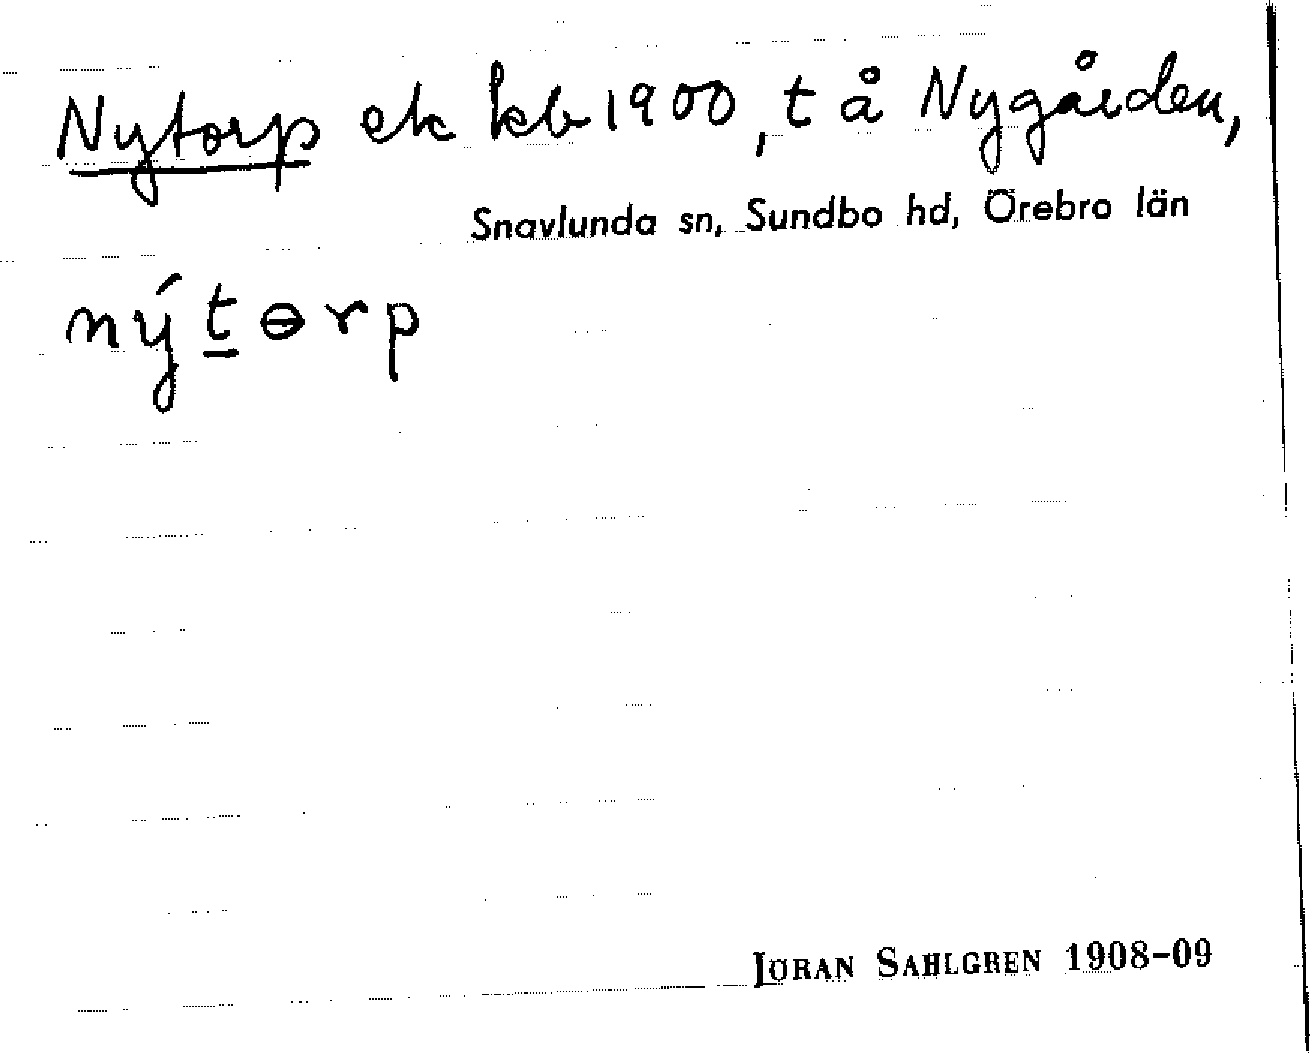 Nytorp ek kb 1900, t å Nygården,
Snavlunda sn, Sundbo hd, Örebro län
nýtɵrp
JÖRAN SAHLGREN 1908-09